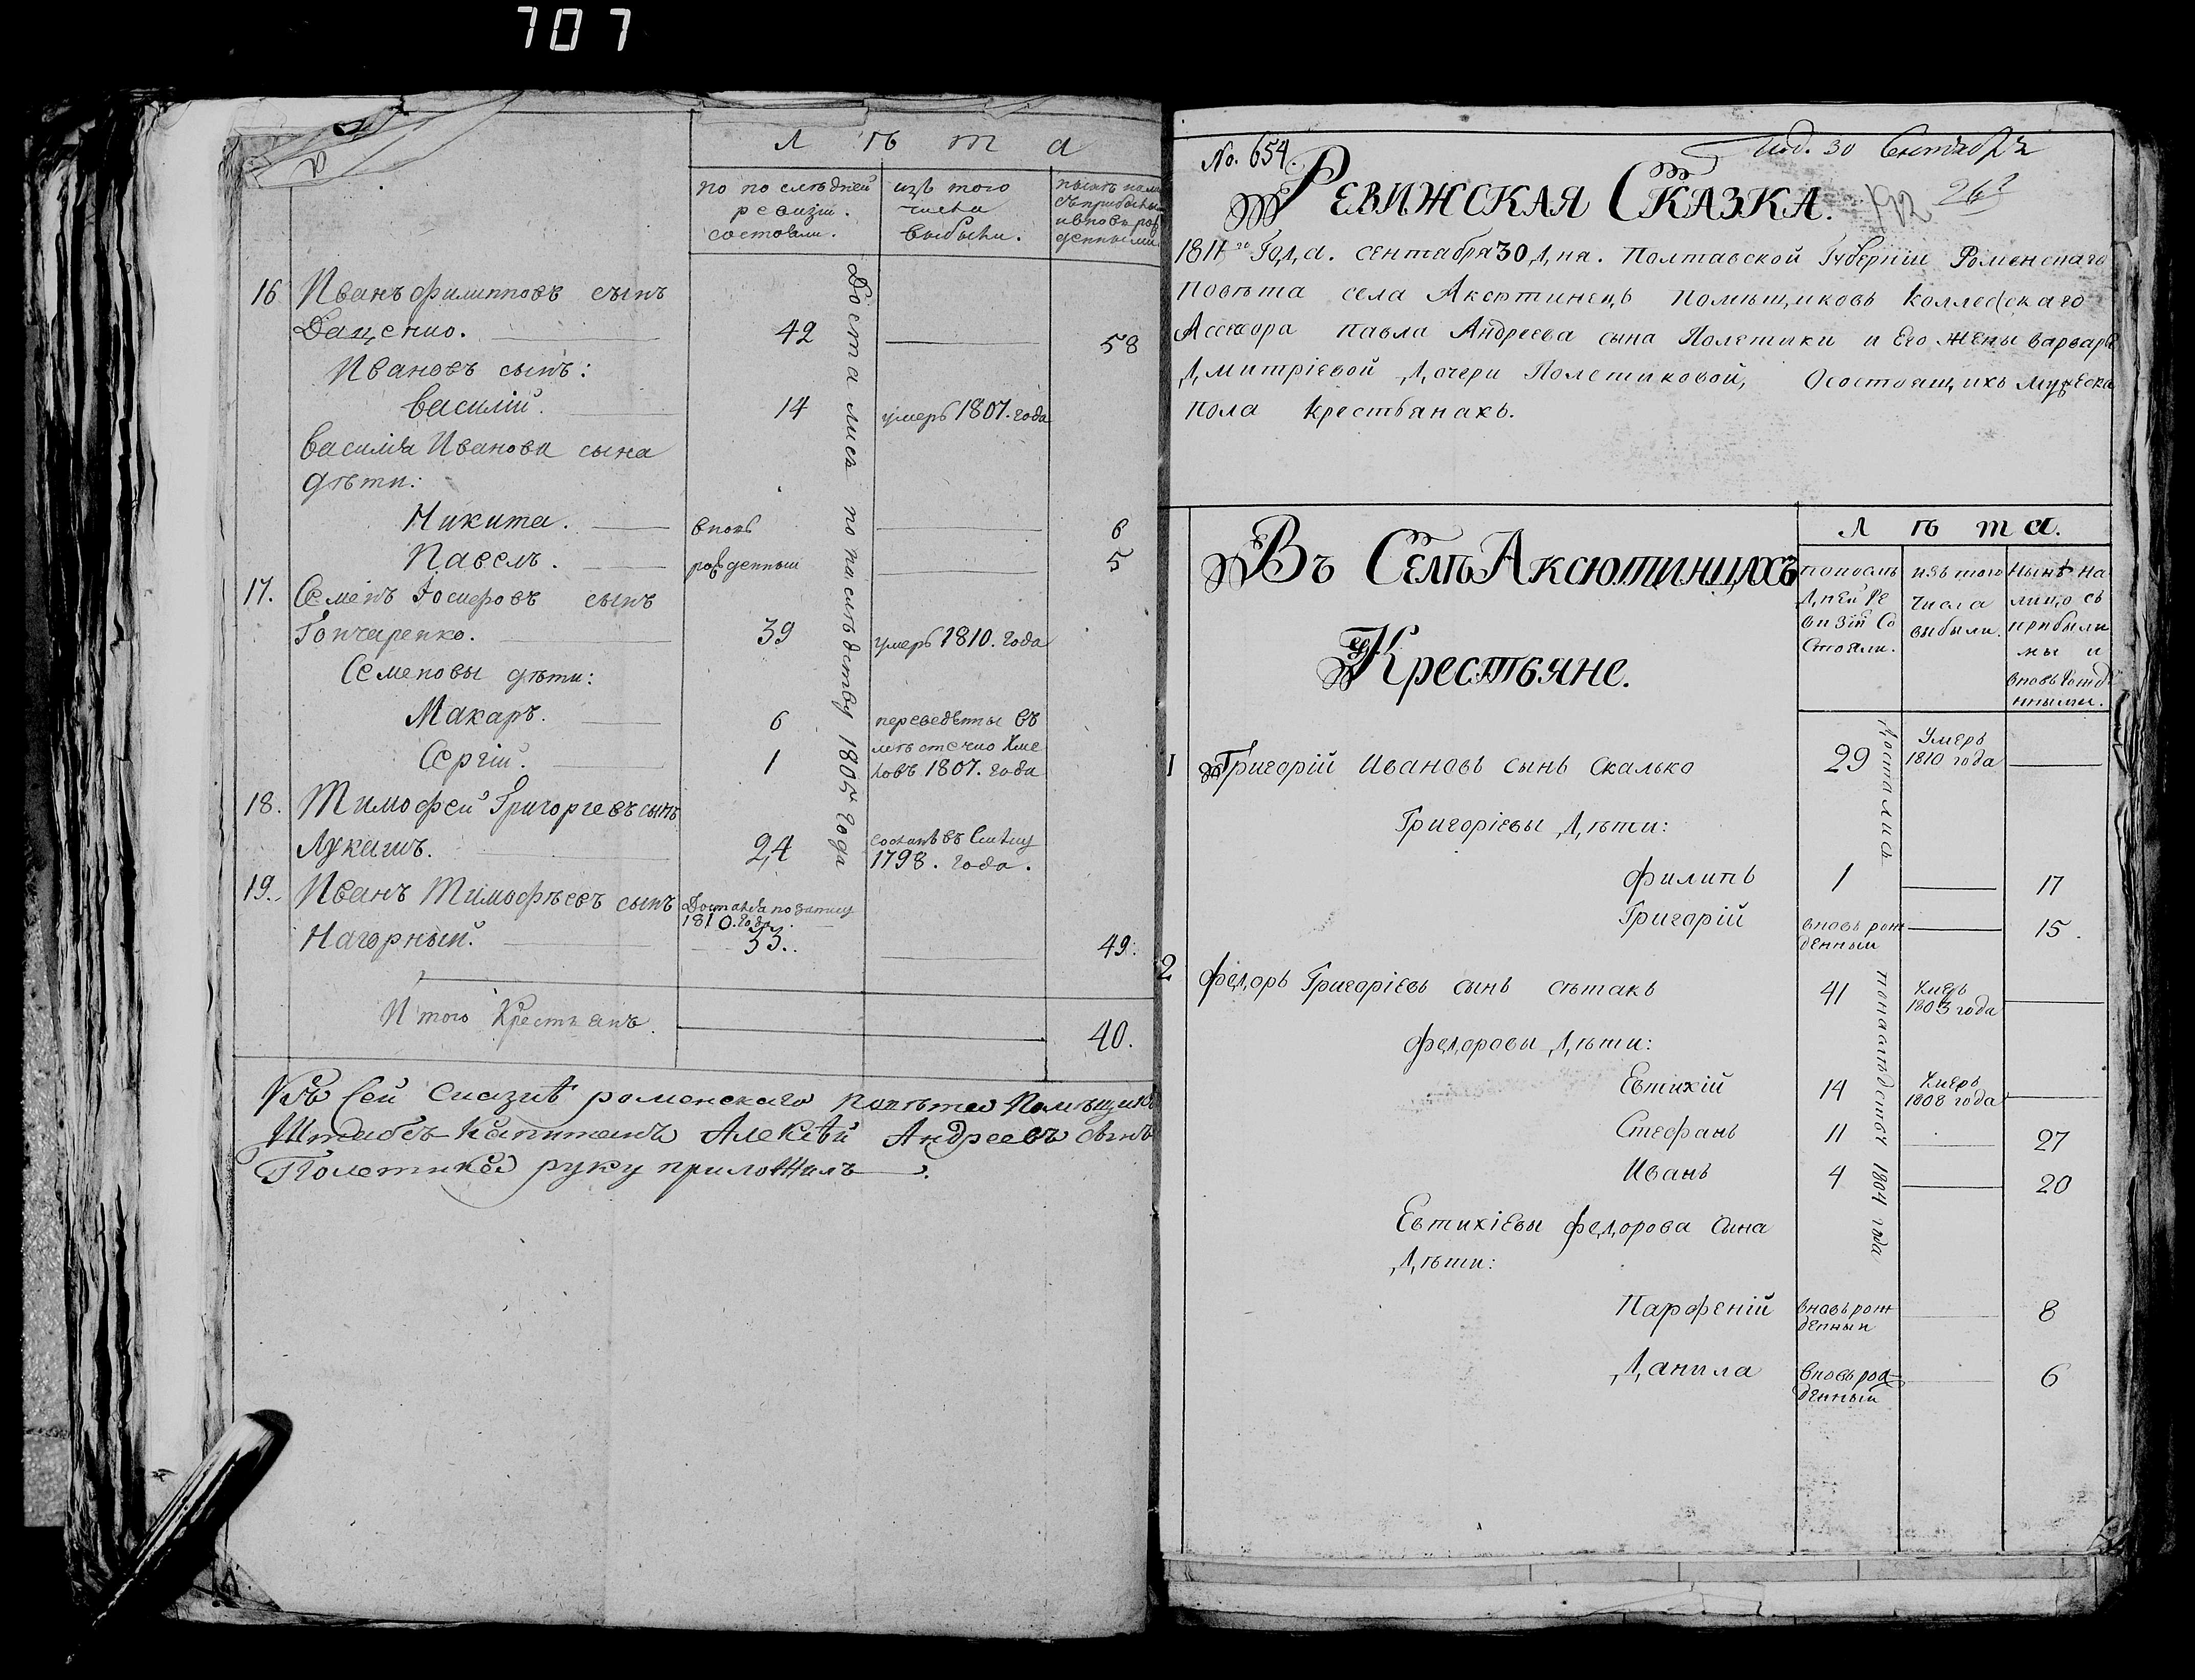 707
Л ѣ т а
по послѣдней ревизіи состояли.
изъ того числа выбыли.
16 Иванъ Филипповъ сынъ
Даценко. 42 58
Ивановъ сынъ:
Василій. 14 умеръ 1807. года
Василія Иванова сына
дѣти:
Никита. вновь 6
Павелъ. рожденныи 5
17. Семенъ Іосифовъ сынъ
Гончаренко. 39 умеръ 1810. года
Семеновы дѣти:
Макаръ. 6 переведены въ
Сергій. 1 1807. года
18. Тимофей Григорьевъ сынъ
Лукашъ. 24 1798. года.
19. Иванъ Тимофѣевъ сынъ
1810. года
Нагорный. 33. 49.
Достались по наслѣдству 1805 года
Итого Крестьянъ. 40.
Къ сей сказкѣ роменскаго повѣта Помѣщикъ
Штабсъ Капитанъ Алексѣй Андреевъ сынъ
Полетика руку приложилъ.
No. 654. Под. 30 Сентября
Ревижская Сказка.
1811го Года. сентабря 30 Дня. Полтавской Губерніи Роменскаго
повѣта села Аксютинецъ помѣщиковъ Коллеѕскаго
Ассесора Павла Андреева сына Полетики и Его жены варвары
Дмитріевой Дочери Полетиковой, Осостоящихъ мужеска
пола крестьянахъ.
Въ Селѣ Аксютинцахъ
Крестьяне.
Л ѣ т а.
попослѣ
Дней ре
визіи со
стояли.
изъ того
числа
выбыли.
Нынѣ на
лицо съ
прибыли
ми и
вновь рожде
нными.
1 Григорій Ивановъ сынъ скалько 29 Умеръ
1810 года
Григоріевы Дѣти:
Филипъ 1 17
Григорій вновь рож
денным 15.
2 Федоръ Григоріевъ сынъ сѣтакъ 41 Умеръ
1803 года
Федоровы Дѣти:
Евтихій 14 Умеръ
1808 года
Стефанъ 11 27
Иванъ 4 20
Евтихіевы Федорова сына
Дѣти:
Парфеній вновь рож
денныи 8
Данила вновь рож
денныи 6
Достались по наслѣдству 1804 года